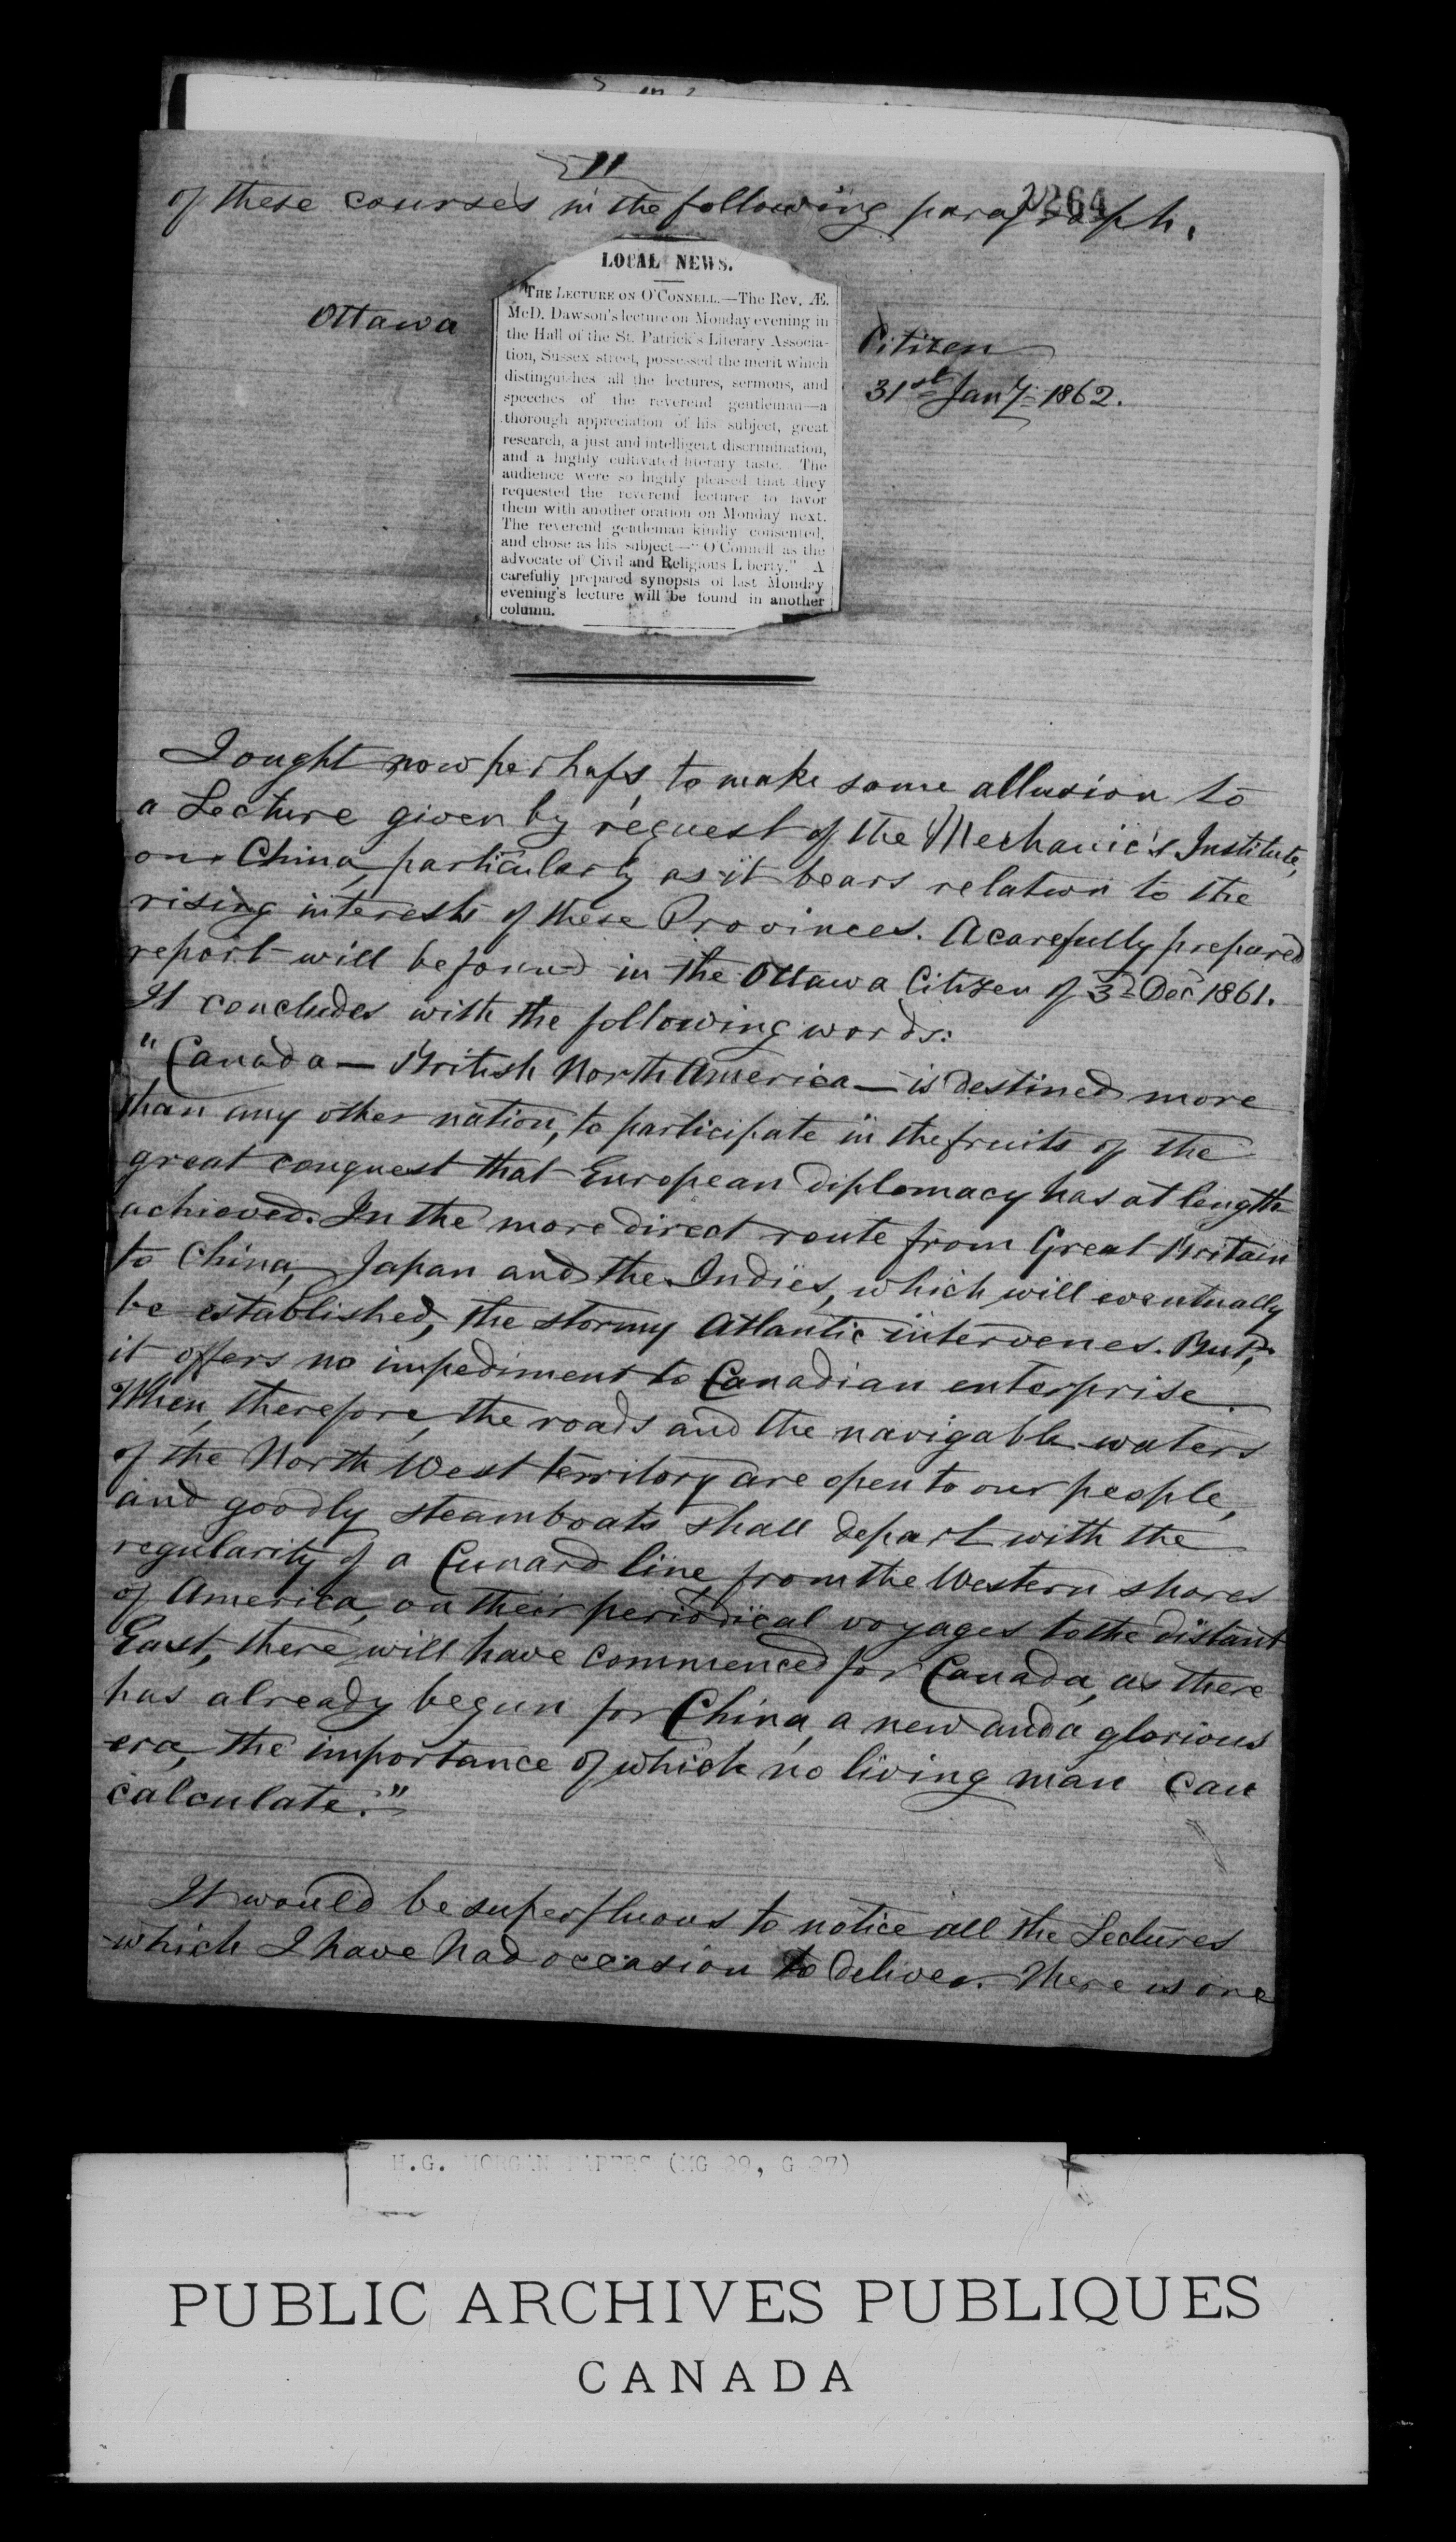 11
2264
of these courses in the following paragraph.
LOCAL NEWS.
Ottawa
Citizen
31st Jany. 1862.
THE LECTURE ON O'CONNELL.—The Rev. Æ.
McD. Dawson's lecture on Monday evening in
the Hall of the St. Patrick's Literary Associa-
tion, Sussex street, possessed the merit which
distinguishes all the lectures, sermons, and
speeches of the reverend gentleman—a
thorough appreciation of his subject, great
research, a just and intelligent discrimination,
and a highly cultivated literary taste. The
audience were so highly pleased that they
requested the reverend lecturer to favor
them with another oration on Monday next.
The reverend gentleman kindly consented,
and chose as his subject—"O'Connell as the
advocate of Civil and Religious Liberty." A
carefully prepared synopsis of last Monday
evening's lecture will be found in another
column.
I ought now perhaps to make some allusion to
a Lecture given by request of the Mechanic's Institute,
on China, particularly as it bears relation to the
rising interests of these Provinces. A carefully prepared
report will be found in the Ottawa Citizen of 3d Dec 1861.
It concludes with the following words:
"Canada — British North America — is destined more
than any other nation, to participate in the fruits of the
great conquest that European diplomacy has at length
achieved. In the more direct route from Great Britain
to China, Japan and the Indies, which will eventually
be established, the stormy Atlantic intervenes. But,
it offers no impediment to Canadian enterprise.
When, therefore, the roads and the navigable waters
of the North West territory are open to our people,
and goodly steamboats shall depart with the
regularity of a Cunard line from the Western shores
of America, on their periodical voyages to the distant
East, there will have commenced for Canada, as there
has already begun for China, a new and a glorious
era, the importance of which no living man can
calculate."
It would be superfluous to notice all the Lectures
which I have had occasion to deliver. There is one
H.G. MORGAN PAPERS (MG 29, G 27)
PUBLIC ARCHIVES PUBLIQUES
CANADA